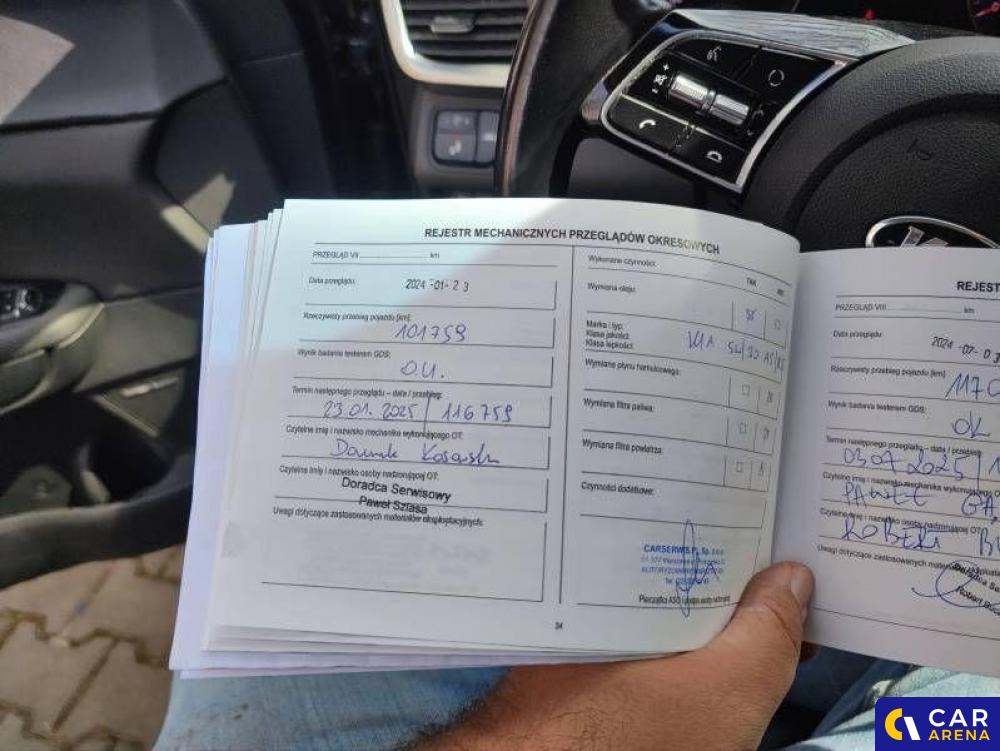 REJESTR MECHANICZNYCH PRZEGLĄDÓW OKRESOWYCH
PRZEGLĄD VII .................... km
Data przeglądu: 2024-01-23
Rzeczywisty przebieg pojazdu [km]:
101759
Wynik badania testerem GDS:
O.K.
Termin następnego przeglądu – data / przebieg:
23.01.2025 / 116759
Czytelne imię i nazwisko mechanika wykonującego OT:
Czytelne imię i nazwisko osoby nadzorującej OT:
Doradca Serwisowy
Paweł Szlasa
Uwagi dotyczące zastosowanych materiałów eksploatacyjnych:
Wykonane czynności:
TAK NIE
Wymiana oleju:
Marka i typ:
Klasa jakości:
Klasa lepkości:
KIA 5W/30 A5/B5
Wymiana płynu hamulcowego:
Wymiana filtra paliwa:
Wymiana filtra powietrza:
Czynności dodatkowe:
CARSERWIS
Pieczątka ASO i podpis osoby
34
REJEST
PRZEGLĄD VIII .................... km
Data przeglądu: 2024-07-03
Rzeczywisty przebieg pojazdu [km]:
Wynik badania testerem GDS:
OK
Termin następnego przeglądu – data / przebieg:
03 07 2025 / 1
Czytelne imię i nazwisko mechanika wykonującego
PAWEŁ
Czytelne imię i nazwisko osoby nadzorującej OT:
ROBERT
Uwagi dotyczące zastosowanych materiałów
Doradca Se
Robert
CAR
ARENA